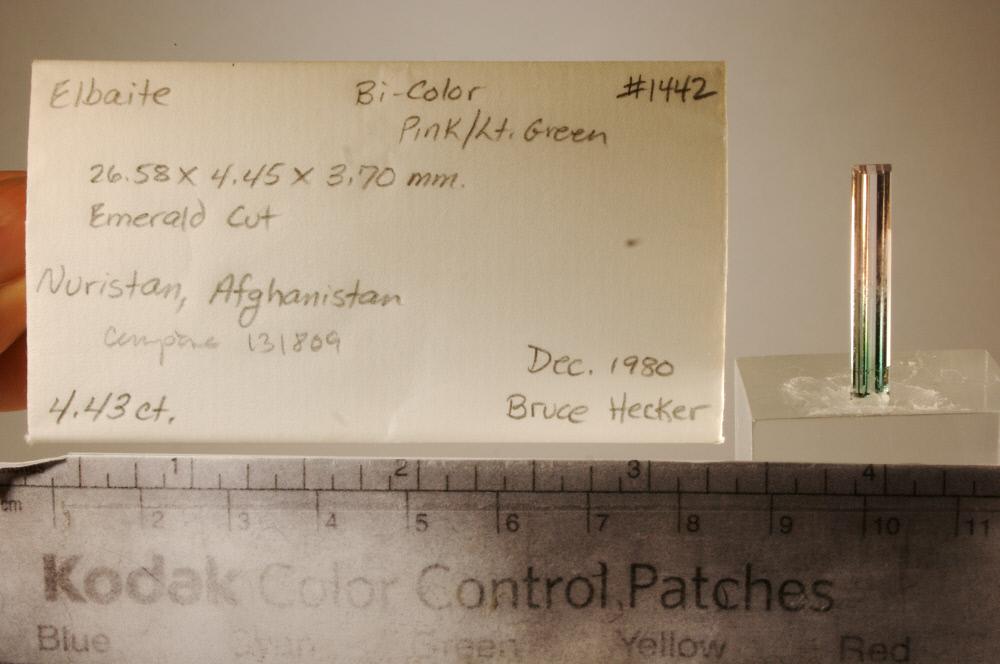 Elbaite Bi-Color #1442
Pink/Lt. Green
26.58 x 4.45 x 3.70 mm.
Emerald Cut
Nuristan, Afghanistan
Compare 131809
Dec. 1980
4.43 ct. Bruce Hecker
1 2 3 4
cm 1 2 3 4 5 6 7 8 9 10 11
Kodak Color Control Patches
Blue Cyan Green Yellow Red